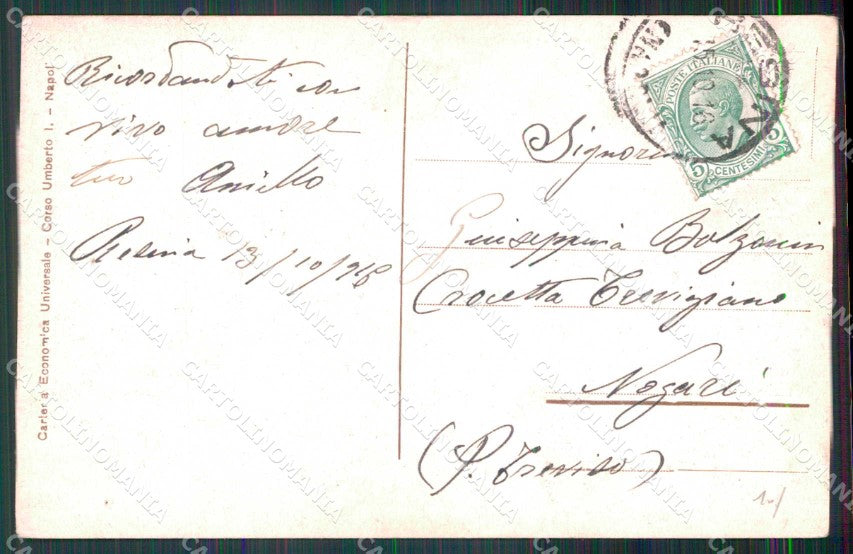 Carteria Economica Universale - Corso Umberto I. - Napoli
Ricordandoti con
vivo amore
tuo Aniello
Resina 13/10/916
POSTE ITALIANE
5 CENTESIMI 5
RESINA
Signorina
Giuseppina Bolzonin
Crocetta Trevigiano
Nogarè
(P. Treviso)
CARTOLINOMANIA